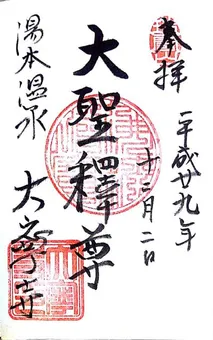 奉拝
平成廿九年
十二月二日
大聖釋尊
湯本温泉
大寧寺